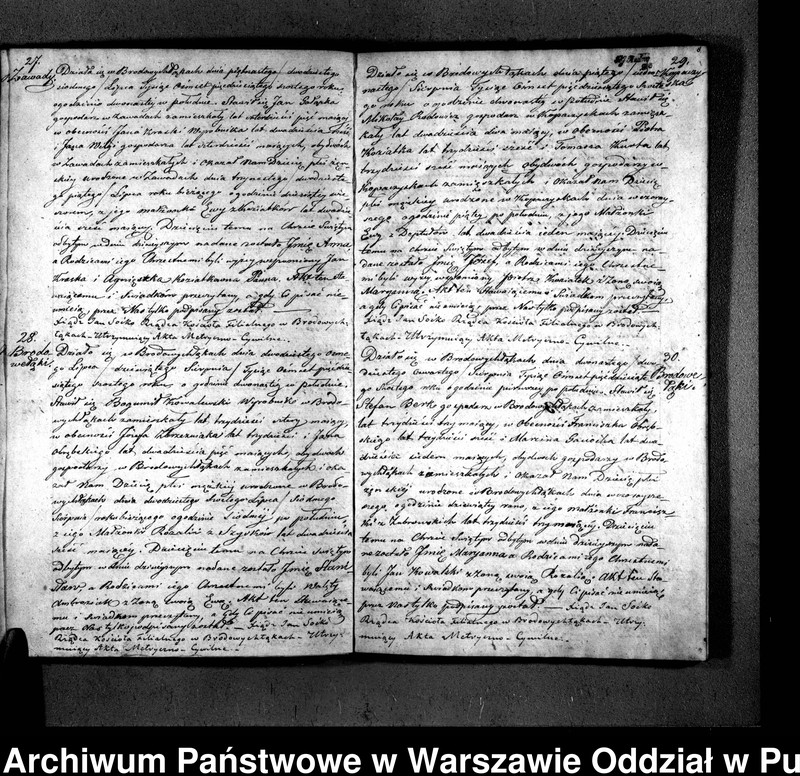 27.
Zawady.
Działo się w Brodowychłąkach dnia piętnastego / dwudziestego
siódmego / Lipca Tysiąc Ośmset pięćdziesiątego szóstego roku,
o godzinie dwunastej w południe. Stawił się Jan
gospodarz w Zawadach zamieszkały lat czterdzieści pięć mający
w obecności Jana Wyrobnika lat dwadzieścia
i Jana gospodarza lat czterdzieści mających, obydwóch
w Zawadach zamieszkałych i okazał Nam Dziecię płci żeń-
skiej urodzone w Zawadach dnia trzynastego / dwudziestego
piątego / Lipca roku bieżącego o godzinie dziesiątej wie-
czorem, z jego małżonki Ewy z Koziatków lat dwadzie-
ścia sześć mającej. Dziecięciu temu na Chrzcie Świętym
odbytym w dniu dzisiejszym nadane zostało Imię Anna
a Rodzicami jego Chrzestnemi byli wyżej wspomniony Jan
i Agnieszka Koziatkowna Panna. Akt ten Sta-
wiającemu i Świadkom przeczytany, a gdy Ci pisać nie-
umieją przez Nas tylko podpisany został
Xiądz Jan Sojko Rządca Kościoła Filialnego w Brodowych-
łąkach Utrzymujący Akta Metryczno Cywilne.
28.
Brodo
wełąki.
Działo się w Brodowychłąkach dnia dwudziestego ósme-
go Lipca / dziewiątego Sierpnia / Tysiąc Ośmset pięćdzie-
siątego szóstego roku, o godzinie dwunastej w południe.
Stawił się Bogumił Kowalewski Wyrobnik w Brodo-
wychłąkach zamieszkały lat trzydzieści mający,
w obecności Józefa lat trzydzieści i Jana
lat dwadzieścia pięć mających, obydwóch
gospodarzy w Brodowychłąkach zamieszkałych i oka-
zał Nam Dziecię płci męskiej urodzone w Brodo-
wychłąkach dnia dwudziestego szóstego Lipca / siódmego
Sierpnia / roku bieżącego o godzinie siódmej po południu,
z jego Małżonki Rozalii z lat dwadzieścia
sześć mającej. Dziecięciu temu na Chrzcie Świętym
Odbytym w dniu dzisiejszym nadane zostało Imię Stani-
sław, a Rodzicami jego Chrzestnemi byli Walenty
Ambroziak z Żoną swoją Ewą. Akt ten Stawiającemu
i Świadkom przeczytany, a gdy Ci pisać nie umieją
przez Nas tylko podpisany został. Xiądz Jan Sojko
Rządca Kościoła Filialnego w Brodowychłąkach Utrzy-
mujący Akta Metryczno Cywilne.
29.
Kopaczy
ska
Działo się w Brodowychłąkach dnia piątego /
nastego / Sierpnia Tysiąc Ośmset pięćdziesiątego szóste-
go roku o godzinie dwunastej w południe. Stawił się
Mikołaj gospodarz w Kopaczyskach zamiesz-
kały lat dwadzieścia dwa mający, w obecności Piotra
Koziatka lat trzydzieści sześć i Tomasza lat
trzydzieści sześć mających obydwóch gospodarzy w
Kopaczyskach zamieszkałych i okazał Nam Dziecię
płci męskiej urodzone w Kopaczyskach dnia wczoraj-
szego o godzinie piątej po południu, z jego Małżonki
Ewy z lat dwadzieścia jeden mającej. Dziecięciu
temu na Chrzcie Świętym odbytym w dniu dzisiejszym na-
dane zostało Imię Józef a Rodzicami jego Chrzestne-
mi byli wyżej wspomniony Piotr Koziatek z Żoną swoją
Maryanną. Akt ten Stawiającemu i Świadkom przeczytany,
a gdy Ci pisać nieumieją przez Nas tylko podpisany został
Xiądz Jan Sojko Rządca Kościoła Filialnego w Brodowych-
łąkach Utrzymujący Akta Metryczno Cywilne.
30.
Brodowe
łąki.
Działo się w Brodowychłąkach dnia dwunastego / dwu-
dziestego czwartego / Sierpnia Tysiąc Ośmset pięćdziesiąte-
go szóstego roku o godzinie pierwszej po południu. Stawił się
Stefan Berk gospodarz w Brodowychłąkach zamieszkały
lat trzydzieści trzy mający, w obecności Franciszka
lat trzydzieści sześć i Marcina lat dwa-
dzieścia siedem mających, obydwóch gospodarzy w Brodo-
wychłąkach zamieszkałych i okazał Nam Dziecię płci
żeńskiej urodzone w Brodowychłąkach dnia wczorajsze-
go, o godzinie dziewiątej rano, z jego małżonki Francisz-
ki z lat trzydzieści trzy mającej. Dziecięciu
temu na Chrzcie Świętym Odbytym w dniu dzisiejszym nada-
ne zostało Imię Maryanna a Rodzicami jego Chrzestnemi
byli Jan Kowalski z Żoną swoją Rozalią. Akt ten Sta-
wiającemu i Świadkom przeczytany, a gdy Ci pisać nie umieją
przez Nas tylko podpisany został. Xiądz Jan Sojko
Rządca Kościoła Filialnego w Brodowychłąkach Utrzy-
mujący Akta Metryczno Cywilne.
Archiwum Państwowe w Warszawie Oddział w Pu